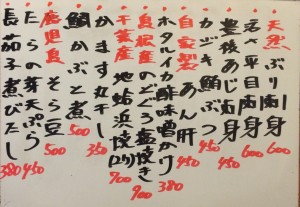 天然ぶり 600
平目刺身 600
豊後あじ刺身 450
かじき鮪ぶつ 450
自家製あん肝 450
ホタルイカ酢味噌かけ 380
島根産のどぐろ塩焼き 900
千葉産地蛤浜焼(2ヶ) 700
かます丸干し 350
鯛かぶと煮 500
鹿児島そら豆 500
たらの芽天ぷら 450
長茄子煮びたし 380